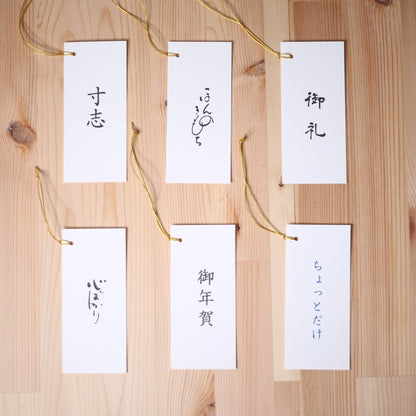 寸志
ほんのきもち
御礼
心ばかり
御年賀
ちょっとだけ